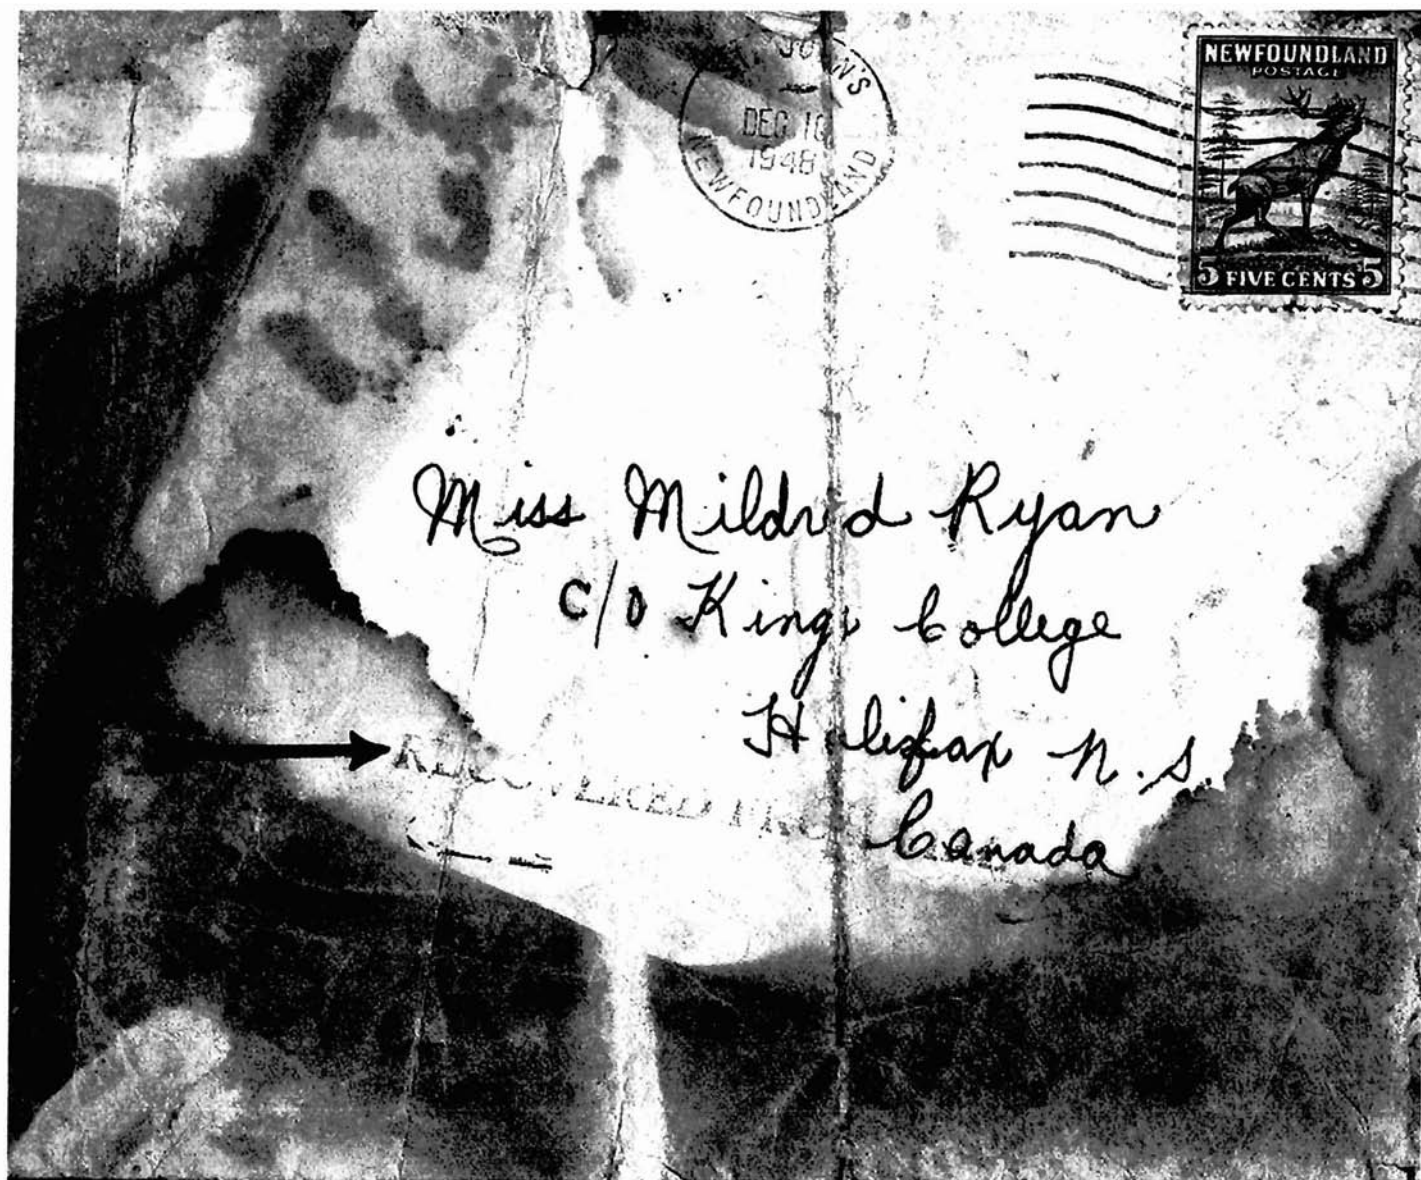 ST. JOHN'S
DEC 10
1948
NEWFOUNDLAND
NEWFOUNDLAND
POSTAGE
5 FIVE CENTS 5
Miss Mildred Ryan
c/o Kings College
Halifax N.S.
Canada
RECOVERED FROM